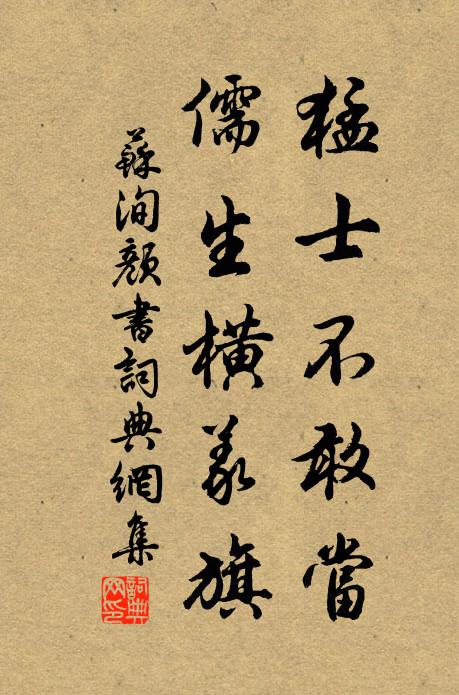 猛士不敢當
儒生橫義旗
蘇洵顏書詞典網集
詞典网印